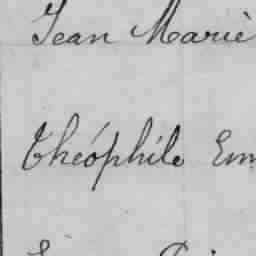 Jean Marie
Théophile Em